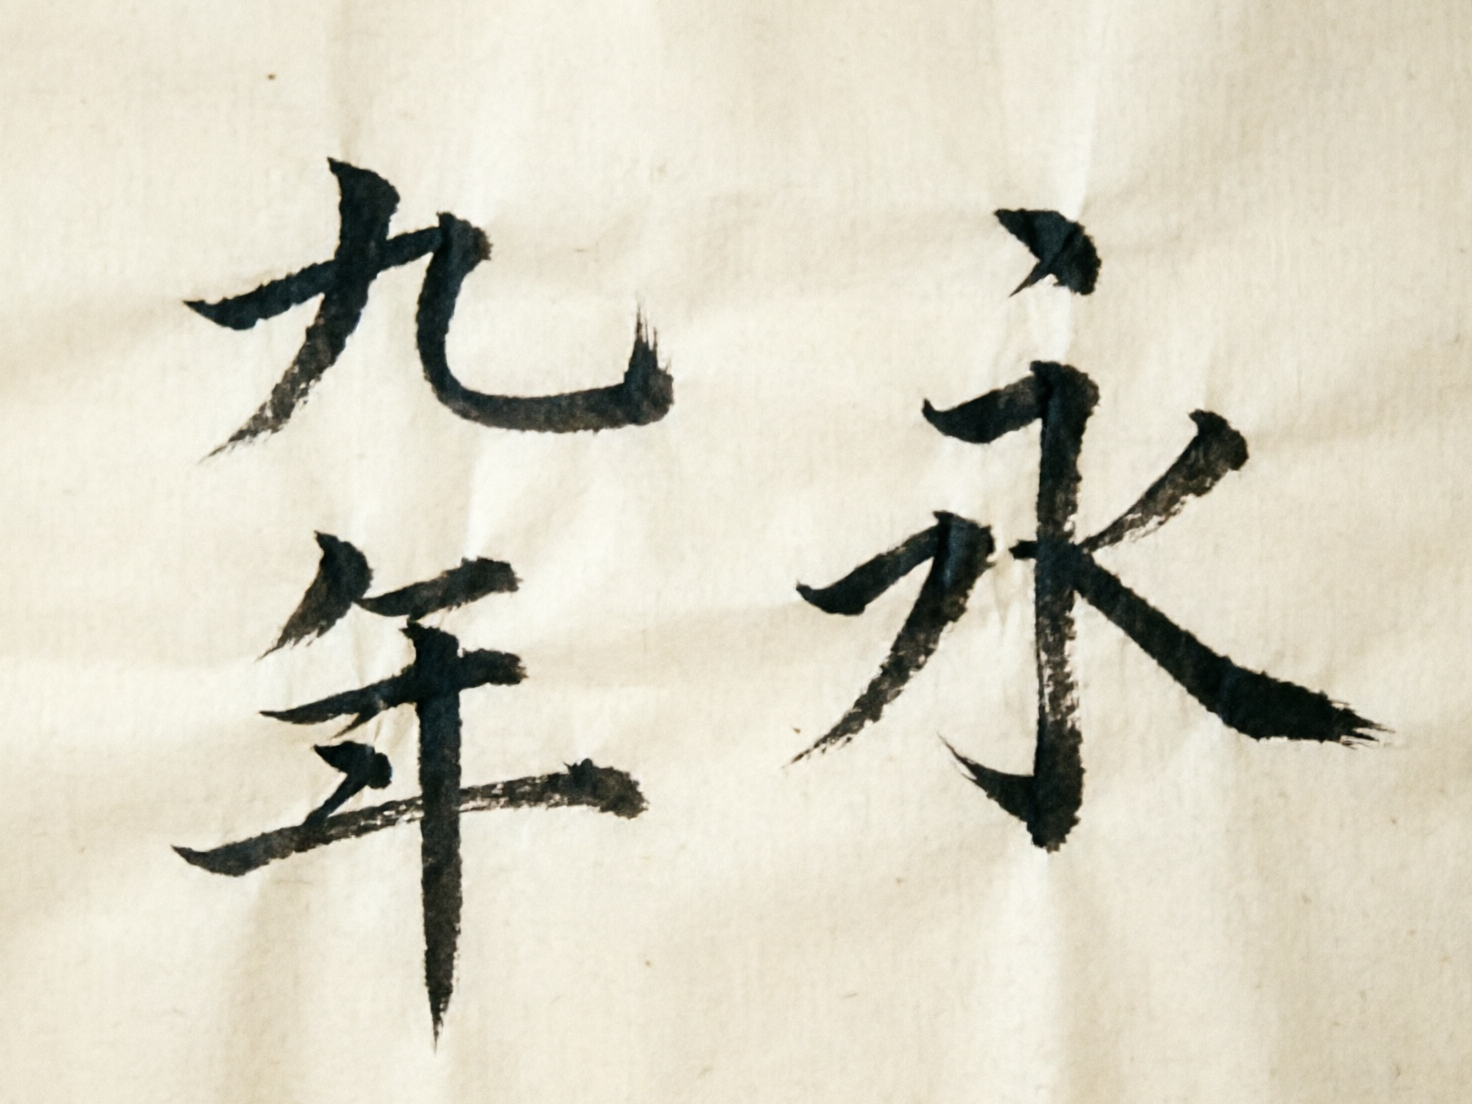 永
九年